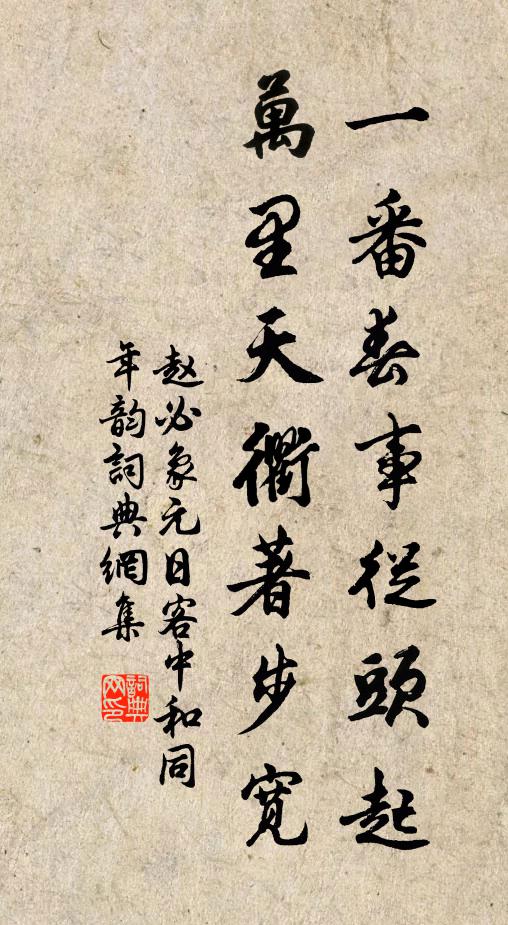 一番春事從頭起
萬里天衢著步寬
赵必象元日客中和同
年韵詞典網集
詞典
网印